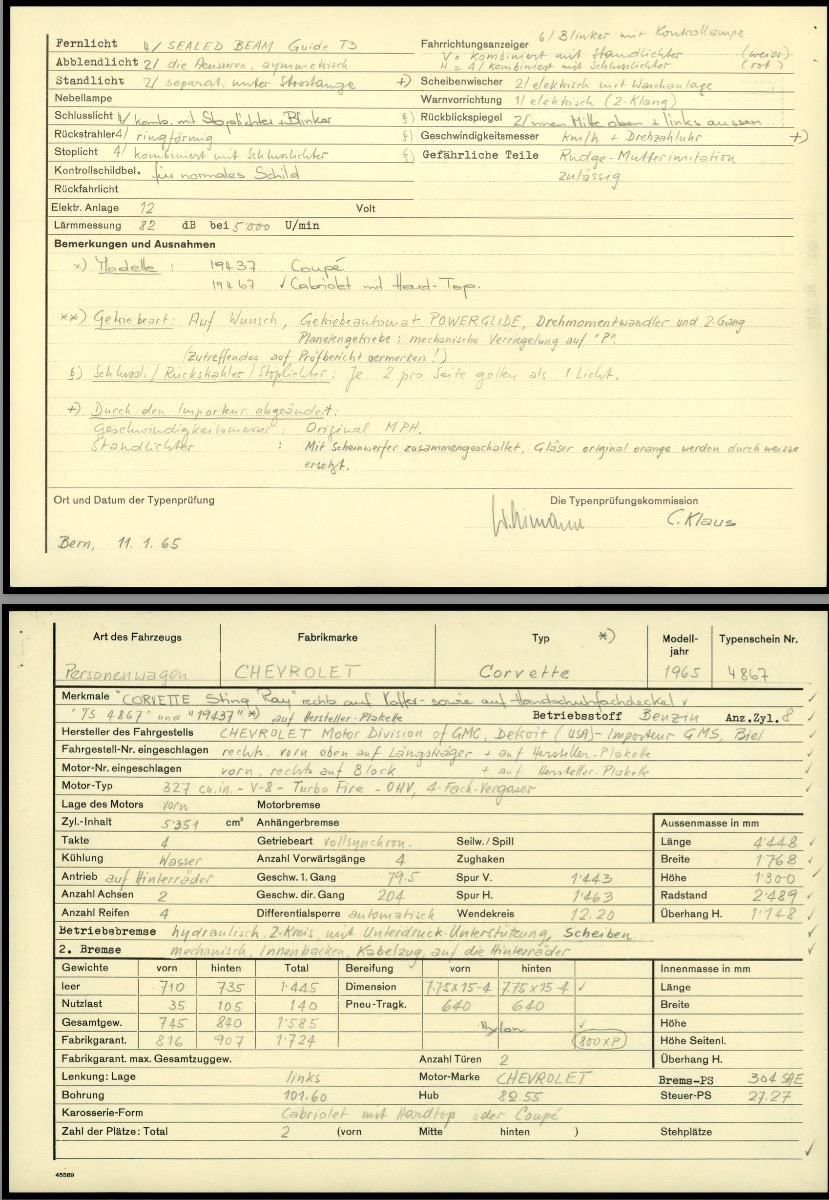 Fernlicht 4/ SEALED BEAM Guide T3
Fahrrichtungsanzeiger 6/ Blinker mit Kontrollampe
V = kombiniert mit Standlichter (weiss)
H = 4/ kombiniert mit Schlusslichter (rot)
Abblendlicht 2/ die Aeusseren, asymmetrisch
Standlicht 2/ separat, unter Stosstange +)
Scheibenwischer 2/ elektrisch mit Waschanlage
Nebellampe
Warnvorrichtung 1/ elektrisch (2-Klang)
Schlusslicht 4/ komb. mit Stoplichter + Blinker §)
Rückblickspiegel 2/ innen Mitte oben + links aussen
Rückstrahler 4/ ringförmig §)
Geschwindigkeitsmesser km/h + Drehzahluhr +)
Stoplicht 4/ kombiniert mit Schlusslichter §)
Gefährliche Teile Rudge-Mutterimitation
zulässig
Kontrollschildbel. für normales Schild
Rückfahrlicht
Elektr. Anlage 12 Volt
Lärmmessung 82 dB bei 5'000 U/min
Bemerkungen und Ausnahmen
x) Modelle : 19437 Coupé
19467 Cabriolet mit Hard-Top.
**) Getriebeart: Auf Wunsch, Getriebeautomat POWERGLIDE, Drehmomentwandler und 2-Gang
Planetengetriebe; mechanische Verriegelung auf "P".
(Zutreffendes auf Prüfbericht vermerken!)
§) Schlussl./Rückstrahler/Stoplichter: Je 2 pro Seite gelten als 1 Licht.
+) Durch den Importeur abgeändert:
Geschwindigkeitsmesser : Original MPH.
Standlichter : Mit Scheinwerfer zusammengeschaltet, Gläser original orange werden durch weisse
ersetzt.
Ort und Datum der Typenprüfung
Die Typenprüfungskommission
C. Klaus
Bern, 11. 1. 65
Art des Fahrzeugs Fabrikmarke Typ *) Modelljahr Typenschein Nr.
Personenwagen CHEVROLET Corvette 1965 4867
Merkmale "CORVETTE Sting Ray" rechts auf Koffer- sowie auf Handschuhfachdeckel
"TS 4867" und "19437" *) auf Hersteller-Plakette Betriebsstoff Benzin Anz.Zyl. 8
Hersteller des Fahrgestells CHEVROLET Motor Division of GMC, Detroit (USA) - Importeur GMS, Biel
Fahrgestell-Nr. eingeschlagen rechts, vorn oben auf Längsträger + auf Hersteller-Plakette
Motor-Nr. eingeschlagen vorn, rechts auf Block + auf Hersteller-Plakette
Motor-Typ 327 cu.in. - V-8 - Turbo Fire - OHV, 4-Fach-Vergaser
Lage des Motors vorn Motorbremse
Zyl.-Inhalt 5'351 cm³ Anhängerbremse Aussenmasse in mm
Takte 4 Getriebeart vollsynchron. Seilw./Spill Länge 4'448
Kühlung Wasser Anzahl Vorwärtsgänge 4 Zughaken Breite 1'768
Antrieb auf Hinterräder Geschw. 1. Gang 79.5 Spur V. 1'443 Höhe 1'300
Anzahl Achsen 2 Geschw. dir. Gang 204 Spur H. 1'463 Radstand 2'489
Anzahl Reifen 4 Differentialsperre automatisch Wendekreis 12.20 Überhang H. 1'148
Betriebsbremse hydraulisch, 2-Kreis, mit Unterdruck-Unterstützung, Scheiben
2. Bremse mechanisch, Innenbacken, Kabelzug, auf die Hinterräder
Gewichte vorn hinten Total Bereifung vorn hinten Innenmasse in mm
leer 710 735 1'445 Dimension 7.75x15-4 7.75x15-4 Länge
Nutzlast 35 105 140 Pneu-Tragk. 640 640 Breite
Gesamtgew. 745 840 1'585 Nylon Höhe
Fabrikgarant. 816 907 1'724 (800xP) Höhe Seitenl.
Fabrikgarant. max. Gesamtzuggew. Anzahl Türen 2 Überhang H.
Lenkung: Lage links Motor-Marke CHEVROLET Brems-PS 304 SAE
Bohrung 101.60 Hub 82.55 Steuer-PS 27.27
Karosserie-Form Cabriolet mit Hardtop oder Coupé
Zahl der Plätze: Total 2 (vorn Mitte hinten ) Stehplätze
45589